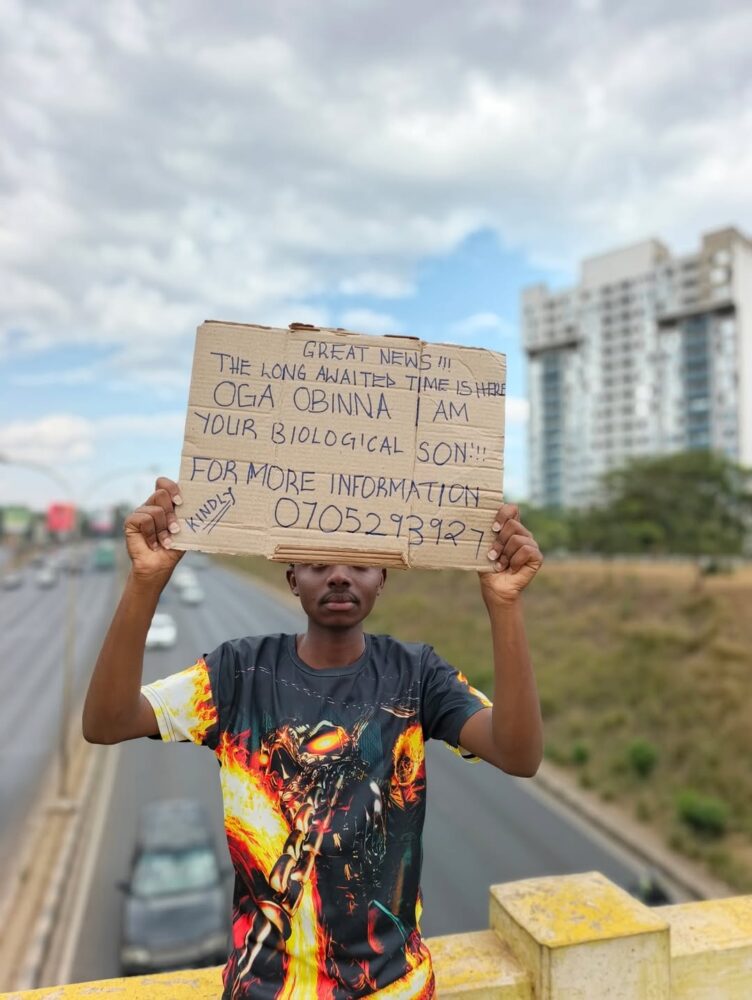 GREAT NEWS!!!
THE LONG AWAITED TIME IS HERE
OGA OBINNA I AM
YOUR BIOLOGICAL SON!!!
FOR MORE INFORMATION
KINDLY 0705293927